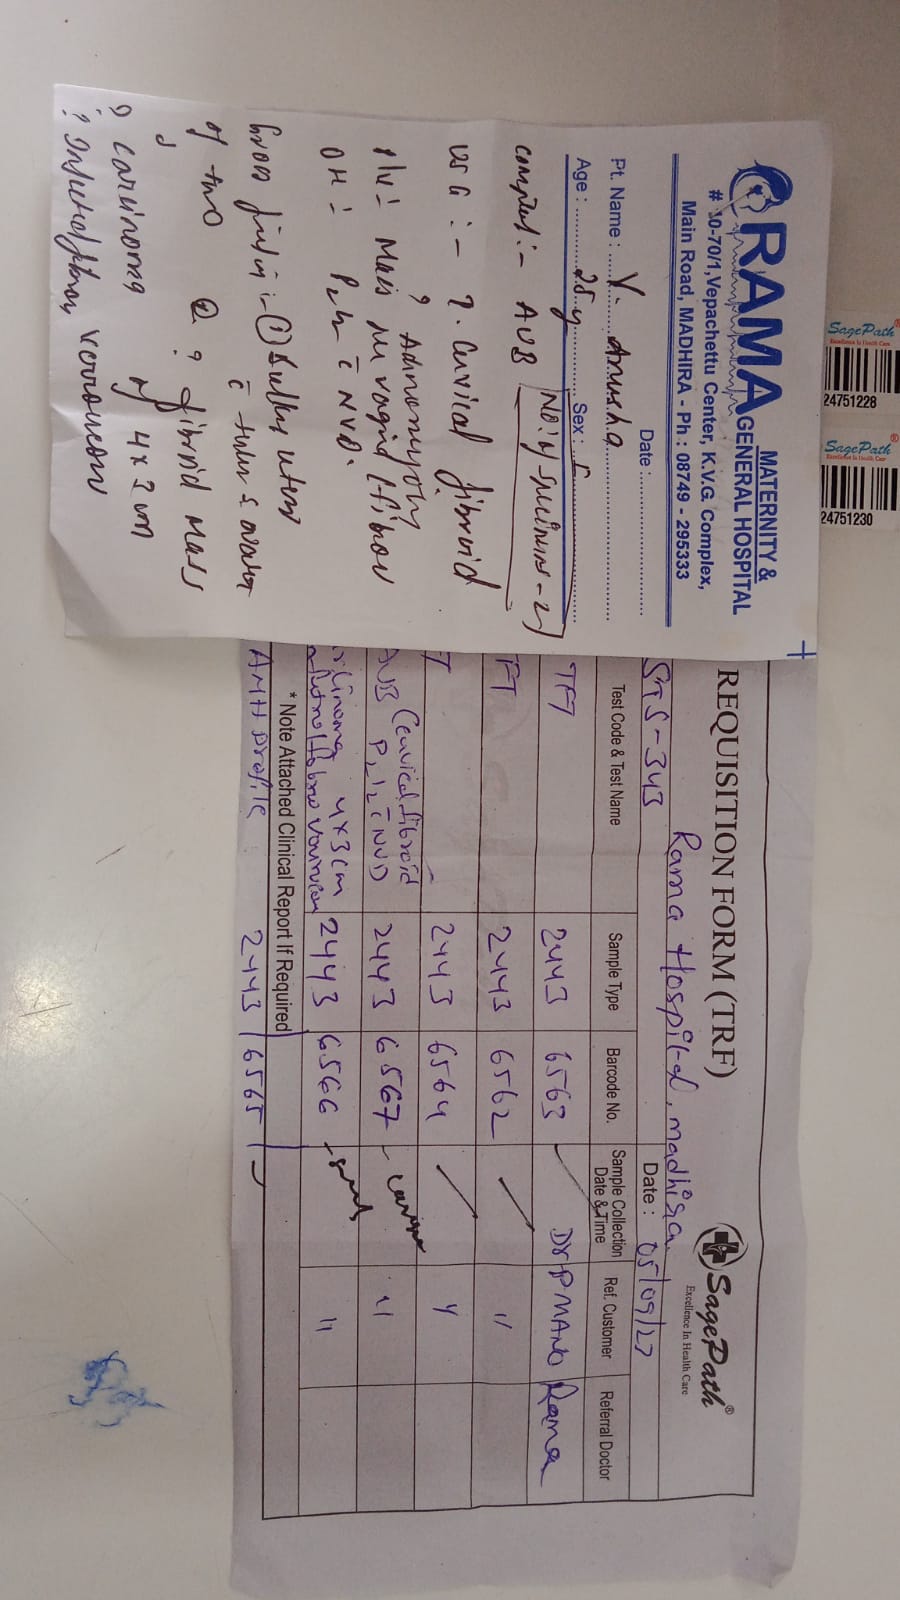 RAMA MATERNITY & GENERAL HOSPITAL
# 10-70/1, Vepachettu Center, K.V.G. Complex,
Main Road, MADHIRA - Ph : 08749 - 295333
Date :
Pt. Name : V. Anusha
Age : 25 y Sex : F
No: of specimens - 2
complet :- AUB
USG :- ? Cervical fibroid
? Adenomyosis
P/v :- Mass in vagina
OH :- P2L2 c̄ NVD.
Gross :- ① Bulky uterus
c̄ tubes & ovaries
② ? fibroid mass
of 4x3 cm
? carcinoma
?
SagePath®
Excellence In Health Care
24751228
SagePath®
Excellence In Health Care
24751230
REQUISITION FORM (TRF)
SagePath®
Excellence In Health Care
Rama Hospital, madhira.
STS-343
Date :
Test Code & Test Name
Sample Type
Barcode No.
Sample Collection Date & Time
Ref. Customer
Referral Doctor
TFT 2443 6563 Dr P MANO Rama
FT 2443 6562 "
T 2443 6564 "
AUB (Cervical fibroid P2L2 c̄ NVD 2443 6567 "
4x3cm 2443 6566 - small "
* Note Attached Clinical Report If Required
AMH Profile 2443 6565